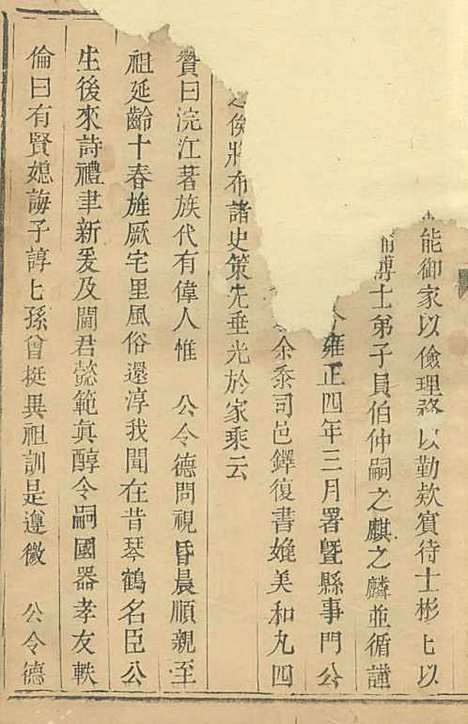 能御家以儉理務以勤欵賓待士彬匕以
博士弟子員伯仲嗣之麒之麟並循謹
雍正四年三月署曁縣事門公
余忝司邑鐸復書媺美和九四
俟將布諸史策先垂光於家乘云
贊曰浣江著族代有偉人惟 公令德問視昏晨順親至
祖延齡十春旌厥宅里風俗還淳我聞在昔琴鶴名臣公
生後來詩禮聿新爰及閫君懿範眞醇令嗣國器孝友軼
倫曰有賢媳誨子諄匕孫曾挺異祖訓是遵微 公令德